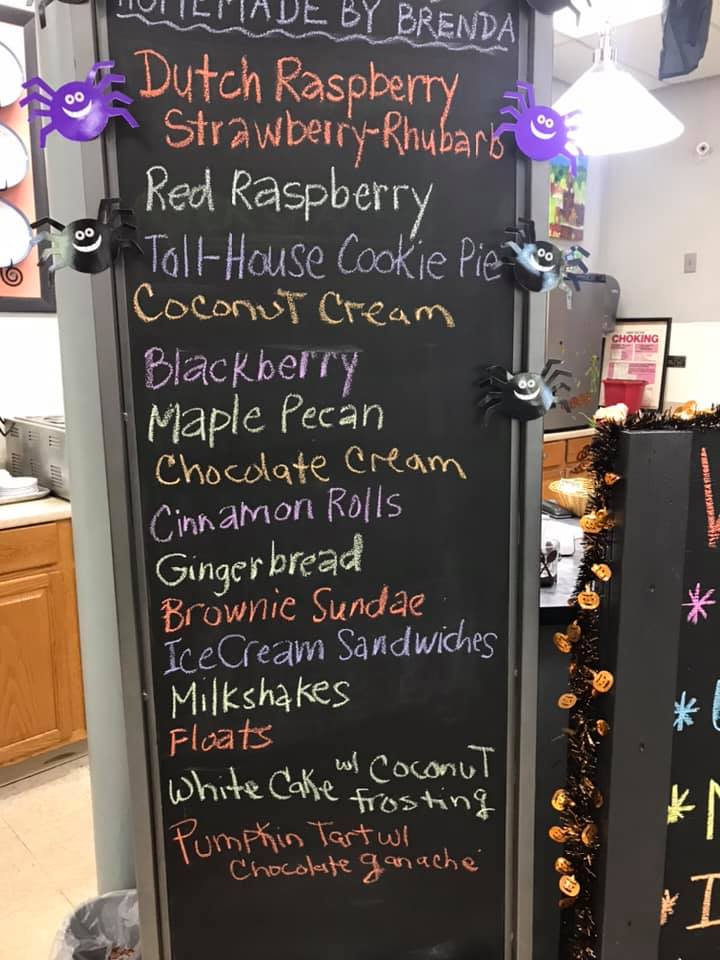 HOMEMADE BY BRENDA
Dutch Raspberry
Strawberry-Rhubarb
Red Raspberry
Toll-House Cookie Pie
Coconut Cream
Blackberry
Maple Pecan
Chocolate Cream
Cinnamon Rolls
Gingerbread
Brownie Sundae
Ice Cream Sandwiches
Milkshakes
Floats
White Cake w/ Coconut
frosting
Pumpkin Tart w/
Chocolate ganache
CHOKING